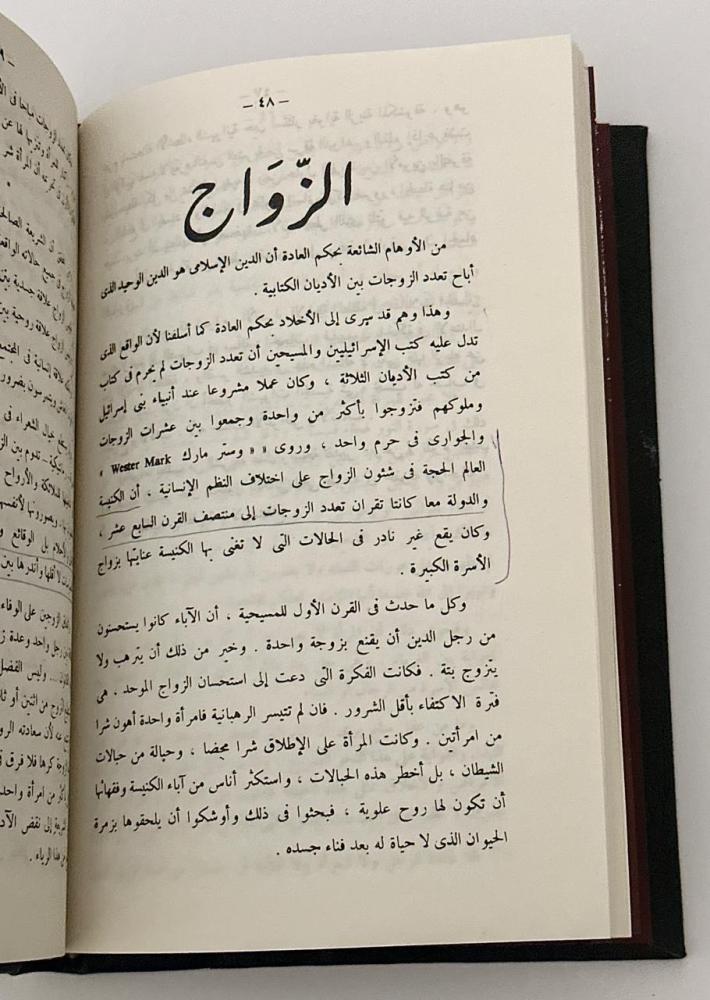 – ٤٨ –
الزَّوَاج
من الأوهام الشائعة بحكم العادة أن الدين الإسلامى هو الدين الوحيد الذى
أباح تعدد الزوجات بين الأديان الكتابية .
وهذا وهم قد سرى إلى الأخلاد بحكم العادة كما أسلفنا لأن الواقع الذى
تدل عليه كتب الإسرائيليين والمسيحين أن تعدد الزوجات لم يحرم فى كتاب
من كتب الأديان الثلاثة ، وكان عملا مشروعا عند أنبياء بنى إسرائيل
وملوكهم فتزوجوا بأكثر من واحدة وجمعوا بين عشرات الزوجات
والجوارى فى حرم واحد ، وروى « « وستر مارك Wester Mark »
العالم الحجة فى شئون الزواج على اختلاف النظم الإنسانية ، أن الكنيسة
والدولة معا كانتا تقران تعدد الزوجات إلى منتصف القرن السابع عشر ،
وكان يقع غير نادر فى الحالات التى لا تغنى بها الكنيسة عنايتها بزواج
الأسرة الكبيرة .
وكل ما حدث فى القرن الأول للمسيحية ، أن الآباء كانوا يستحسنون
من رجل الدين أن يقنع بزوجة واحدة . وخير من ذلك أن يترهب ولا
يتزوج بتة . فكانت الفكرة التى دعت إلى استحسان الزواج الموحد . هى
فترة الاكتفاء بأقل الشرور . فان لم تتيسر الرهبانية فامرأة واحدة أهون شرا
من امرأتين . وكانت المرأة على الإطلاق شرا محضا ، وحبالة من حبالات
الشيطان ، بل أخطر هذه الحبالات ، واستكثر أناس من آباء الكنيسة وفقهائها
أن تكون لها روح علوية ، فبحثوا فى ذلك وأوشكوا أن يلحقوها بزمرة
الحيوان الذى لا حياة له بعد فناء جسده .